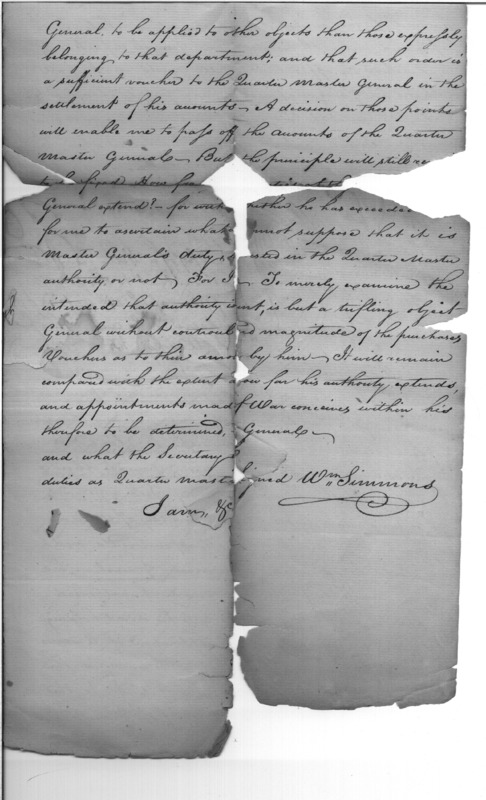 General, to be applied to other objects than those expressly
belonging to that department; and that such order is
a sufficient voucher to the Quarter Master General in the
settlement of his accounts – A decision on those points
will enable me to pass off the accounts of the Quarter
Master General – But the principle will still re
to be fixed How far
General extend? – for with whether he has exceeded
for me to ascertain what nnot suppose that it is
Master General's duty, ested in the Quarter Master
authority or not For I – To merely examine the
intended that authority unt, is but a trifling object
General without controul nd magnitude of the purchases
Vouchers as to their amo by him – It will remain
compared with the extent a ow far his authority extends,
and appointments made f War conceives within his
therefore to be determined, General –
and what the Secretary
duties as Quarter Mast igned Wm Simmons
I am, &c